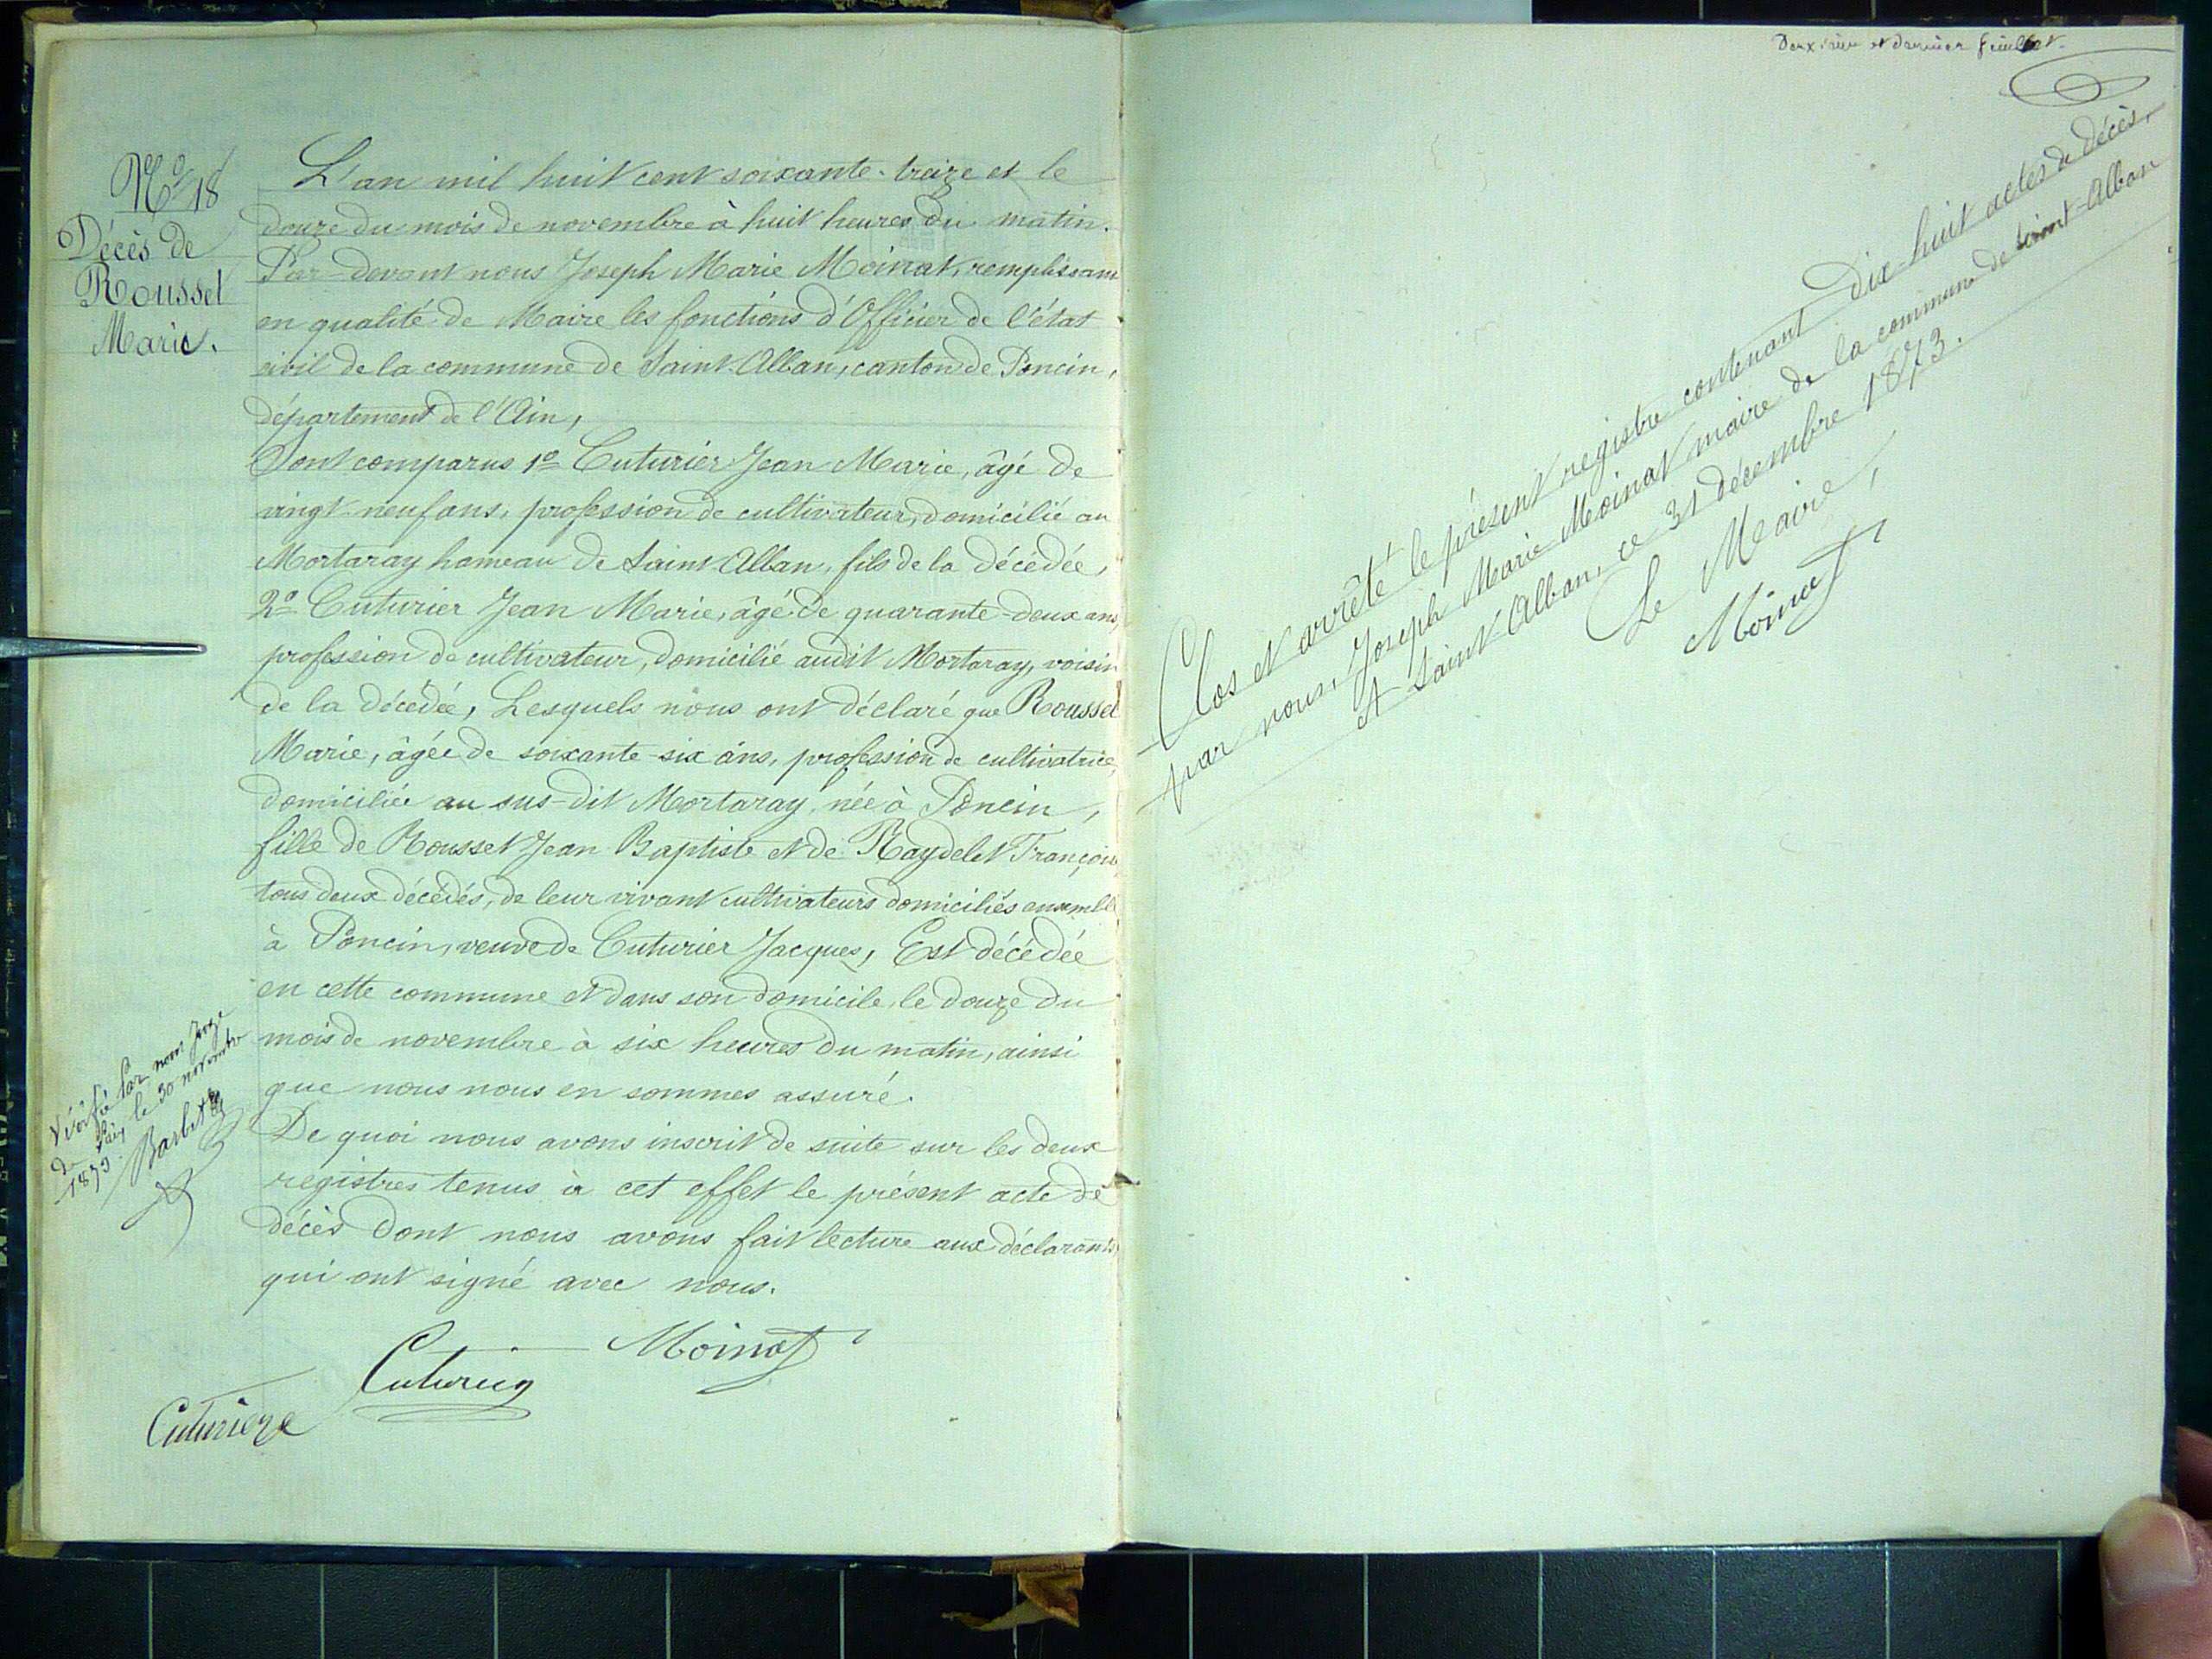 N° 18
Décès de
Rousset
Marie.
L'an mil huit cent soixante-treize et le
douze du mois de novembre à huit heures du matin.
Par-devant nous Joseph Marie Moinat, remplissant
en qualité de Maire les fonctions d'Officier de l'état
civil de la commune de Saint-Alban, canton de Poncin,
département de l'Ain,
Sont comparus 1° Cuturier Jean Marie, âgé de
vingt-neuf ans, profession de cultivateur, domicilié au
Mortaray hameau de Saint-Alban, fils de la décédée,
2° Cuturier Jean Marie, âgé de quarante-deux ans,
profession de cultivateur, domicilié audit Mortaray, voisin
de la décédée, Lesquels nous ont déclaré que Rousset
Marie, âgée de soixante-six ans, profession de cultivatrice,
domiciliée au sus-dit Mortaray, née à Poncin,
fille de Rousset Jean Baptiste et de Raydelet Françoise
tous deux décédés, de leur vivant cultivateurs domiciliés ensemble
à Poncin, veuve de Cuturier Jacques, Est décédée
en cette commune et dans son domicile, le douze du
mois de novembre à six heures du matin, ainsi
que nous nous en sommes assuré.
De quoi nous avons inscrit de suite sur les deux
registres tenus à cet effet le présent acte de
décès dont nous avons fait lecture aux déclarants
qui ont signé avec nous.
Moinat
Cuturier
Vérifié par nous Juge
de Paix le 30 novembre
1873.
Deuxième et dernier feuillet.
Clos et arrêté le présent registre contenant Dix-huit actes de décès,
par nous, Joseph Marie Moinat maire de la commune de saint-Alban
A Saint-Alban, ce 31 décembre 1873.
Le Maire,
Moinat